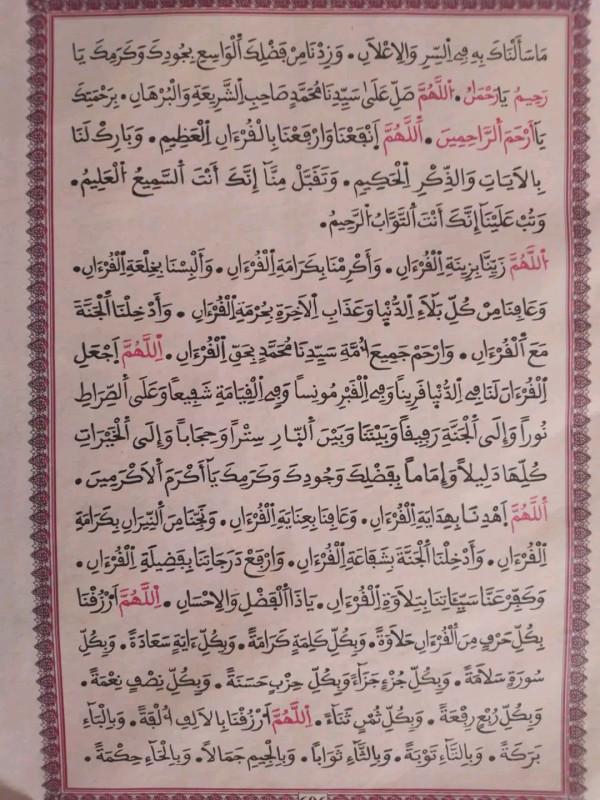 مَا سَأَلْنَاكَ بِهِ فِي اِ۬لسِّرِّ وَالِاعْلَانِ. وَزِدْنَا مِنْ فَضْلِكَ اَ۬لْوَاسِعِ بِجُودِكَ وَكَرَمِكَ يَا
رَحِيمُ يَارَحْمَٰنُ. اَ۬للَّهُمَّ صَلِّ عَلَىٰ سَيِّدِنَا مُحَمَّدٍ صَاحِبِ اِ۬لشَّرِيعَةِ وَالْبُرْهَانِ. بِرَحْمَتِكَ
يَا أَرْحَمَ اَ۬لرَّاحِمِينَ. اَ۬للَّهُمَّ اَ۪نْفَعْنَا وَارْفَعْنَا بِالْقُرْءَانِ اِ۬لْعَظِيمِ. وَبَارِكْ لَنَا
بِالَايَاتِ وَالذِّكْرِ اِ۬لْحَكِيمِ. وَتَقَبَّلْ مِنَّا إِنَّكَ أَنْتَ اَ۬لسَّمِيعُ اُ۬لْعَلِيمُ.
وَتُبْ عَلَيْنَا إِنَّكَ أَنْتَ اَ۬لتَّوَّابُ اُ۬لرَّحِيمُ.
اَ۬للَّهُمَّ زَيِّنَّا بِزِينَةِ اِ۬لْقُرْءَانِ. وَأَكْرِمْنَا بِكَرَامَةِ اِ۬لْقُرْءَانِ. وَأَلْبِسْنَا بِخِلْعَةِ اِ۬لْقُرْءَانِ.
وَعَافِنَا مِنْ كُلِّ بَلَاءِ اِ۬لدُّنْيَا وَعَذَابِ اِ۬لَاخِرَةِ بِحُرْمَةِ اِ۬لْقُرْءَانِ. وَأَدْخِلْنَا اَ۬لْجَنَّةَ
مَعَ اَ۬لْقُرْءَانِ. وَارْحَمْ جَمِيعَ أُمَّةِ سَيِّدِنَا مُحَمَّدٍ بِحَقِّ اِ۬لْقُرْءَانِ. اَ۬للَّهُمَّ اَ۪جْعَلِ
اِ۬لْقُرْءَانَ لَنَا فِي اِ۬لدُّنْيَا قَرِيناً وَفِي اِ۬لْقَبْرِ مُونِساً وَفِي اِ۬لْقِيَامَةِ شَفِيعاً وَعَلَى اَ۬لصِّرَاطِ
نُوراً وَإِلَى اَ۬لْجَنَّةِ رَفِيقاً وَبَيْنَنَا وَبَيْنَ اَ۬لنَّارِ سِتْراً وَحِجَاباً وَإِلَى اَ۬لْخَيْرَاتِ
كُلِّهَا دَلِيلاً وَإِمَاماً بِفَضْلِكَ وَجُودِكَ وَكَرَمِكَ يَا أَكْرَمَ اَ۬لَاكْرَمِينَ.
اَ۬للَّهُمَّ اَ۪هْدِنَا بِهِدَايَةِ اِ۬لْقُرْءَانِ. وَعَافِنَا بِعِنَايَةِ اِ۬لْقُرْءَانِ. وَنَجِّنَا مِنَ اَ۬لنِّيرَانِ بِكَرَامَةِ
اِ۬لْقُرْءَانِ. وَأَدْخِلْنَا اَ۬لْجَنَّةَ بِشَفَاعَةِ اِ۬لْقُرْءَانِ. وَارْفَعْ دَرَجَاتِنَا بِفَضِيلَةِ اِ۬لْقُرْءَانِ.
وَكَفِّرْ عَنَّا سَيِّئَاتِنَا بِتِلَاوَةِ اِ۬لْقُرْءَانِ. يَاذَا اَ۬لْفَضْلِ وَالِاحْسَانِ. اَ۬للَّهُمَّ اَ۟رْزُقْنَا
بِكُلِّ حَرْفٍ مِنَ اَ۬لْقُرْءَانِ حَلَاوَةً. وَبِكُلِّ كَلِمَةٍ كَرَامَةً. وَبِكُلِّ ءَايَةٍ سَعَادَةً. وَبِكُلِّ
سُورَةٍ سَلَامَةً. وَبِكُلِّ جُزْءٍ جَزَاءً وَبِكُلِّ حِزْبٍ حَسَنَةً. وَبِكُلِّ نِصْفٍ نِعْمَةً.
وَبِكُلِّ رُبُعٍ رِفْعَةً. وَبِكُلِّ ثُمُنٍ ثَنَاءً. اَ۬للَّهُمَّ اَ۟رْزُقْنَا بِالَالِفِ أُلْفَةً. وَبِالْبَاءِ
بَرَكَةً. وَبِالتَّاءِ تَوْبَةً. وَبِالثَّاءِ ثَوَاباً. وَبِالْجِيمِ جَمَالاً. وَبِالْحَاءِ حِكْمَةً.